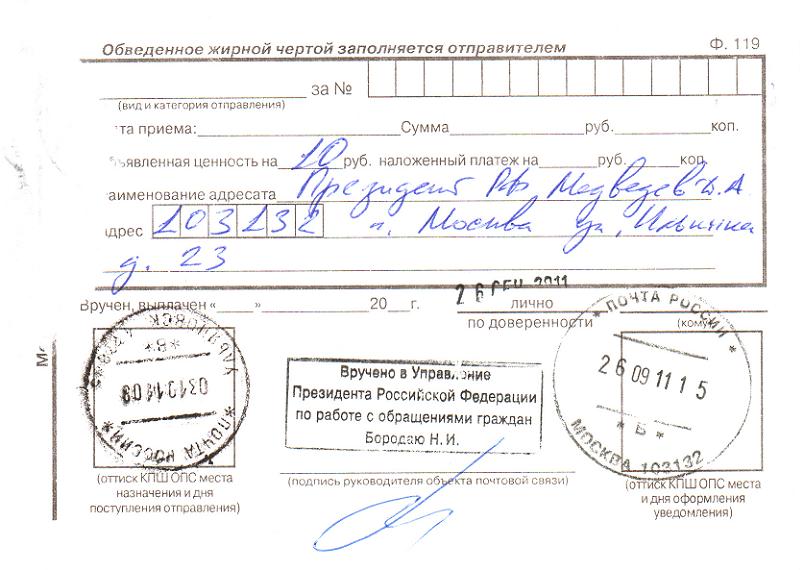 Обведенное жирной чертой заполняется отправителем
Ф. 119
за №
(вид и категория отправления)
та приема: Сумма руб. коп.
ъявленная ценность на 10 руб. наложенный платеж на руб. коп
аименование адресата Президент РФ Медведев Д.А.
дрес 103132 г. Москва ул. Ильинка
д. 23
26 СЕН 2011
Вручен, выплачен « » 20 г. лично
по доверенности
(кому)
ПОЧТА РОССИИ
26 09 11 15
* Б *
МОСКВА 103132
УЛЬЯНОВСК
*В*
03 10 11 09
*ПОЧТА РОССИИ*
Вручено в Управление
Президента Российской Федерации
по работе с обращениями граждан
Бородаю Н. И.
(оттиск КПШ ОПС места
назначения и дня
поступления отправления)
(подпись руководителя объекта почтовой связи)
(оттиск КПШ ОПС места
и дня оформления
уведомления)